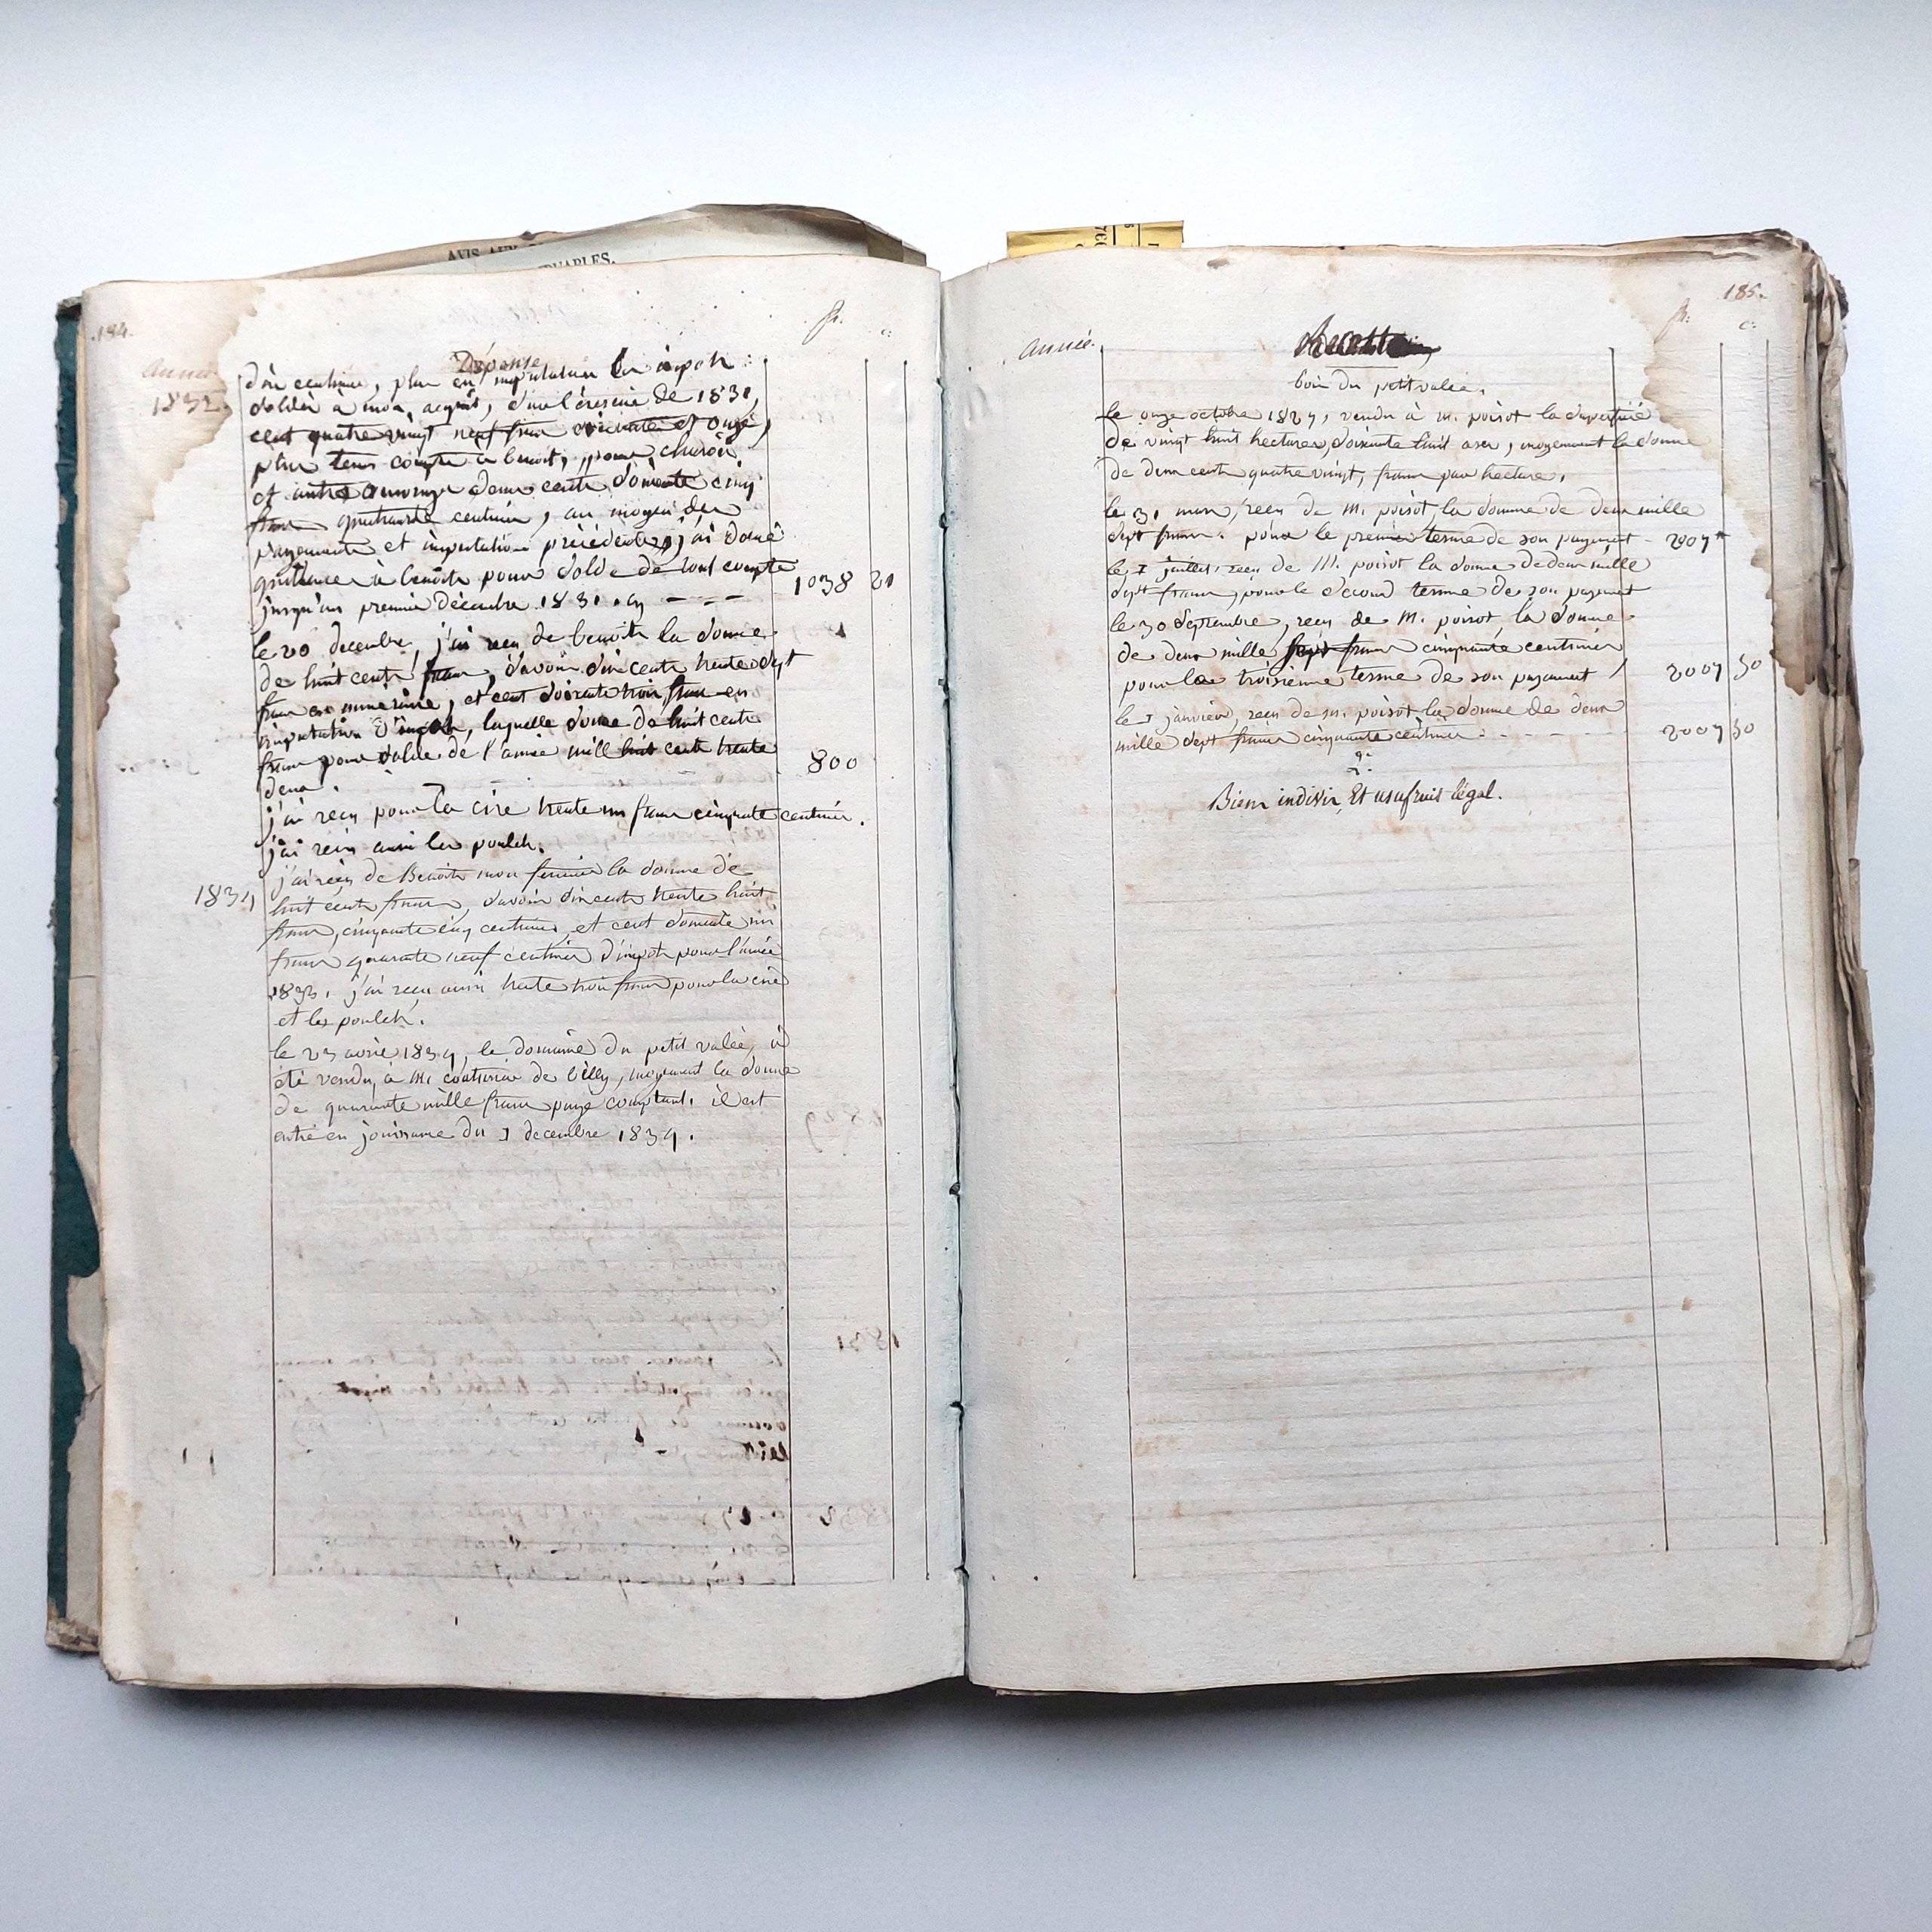 AVIS AUX
184.
fr. c.
Dépense
année
1832
dix centimes, plus en imputation les impots
soldés à mon acquit, sur l'éxercice de 1831,
cent quatre vingt neuf francs soixante et onze,
plus tenu compte a benoit, pour charois
et autres ouvrages deux cents soixante cinq
francs quatrevingt centimes, au moyen des
payements et imputations précédentes, j'ai doné
quittance à benoits pour solde de tout compte
jusqu'au premier décembre 1831. cy - - - 1038 21
le 20 decembre, j'ai reçu de benoits la somme
de huit cents francs, savoir six cents trente sept
francs en numéraire, et cent soixante trois francs en
imputation d'impots, laquelle somme de huit cents
francs pour solde de l'année mille huit cents trente
deux. 800
j'ai reçu pour la cire trente un francs cinquante centimes.
j'ai reçu aussi les poulets.
1834
j'ai reçu de Benoits mon fermier la somme de
huit cents francs, savoir six cents trente huit
francs, cinquante cinq centimes, et cent soixante un
francs quarante neuf centimes d'impots pour l'année
1833. j'ai reçu aussi trente trois francs pour la cire
et les poulets.
le 23 avril 1834, le domaine du petit valée, a
été vendu, à M. de billy, moyenant la somme
de quarante mille francs payé comptant. il est
entré en jouissance du 1 decembre 1834.
185.
fr. c.
année.
Recette
bois du petit valée.
le onze octobre 1827, vendu à m. poisot la superficie
de vingt huit hectares, soixante huit ares, moyenant la somme
de deux cents quatre vingt, francs par hectare.
le 31 mars, reçu de M. poisot, la somme de deux mille
sept francs. pour le premier terme de son payement - 2007 "
le 1 juillet, reçu de M. poisot la somme de deux mille
sept francs, pour le second terme de son payement
le 30 septembre, reçu de M. poisot, la somme
de deux mille sept francs cinquante centimes
pour le troisieme terme de son payement / 2007 50
le 1 janvier, reçu de m. poisot la somme de deux
mille sept francs cinquante centimes - - - - - 2007 50
Biens indivis, Et usufruit légal.